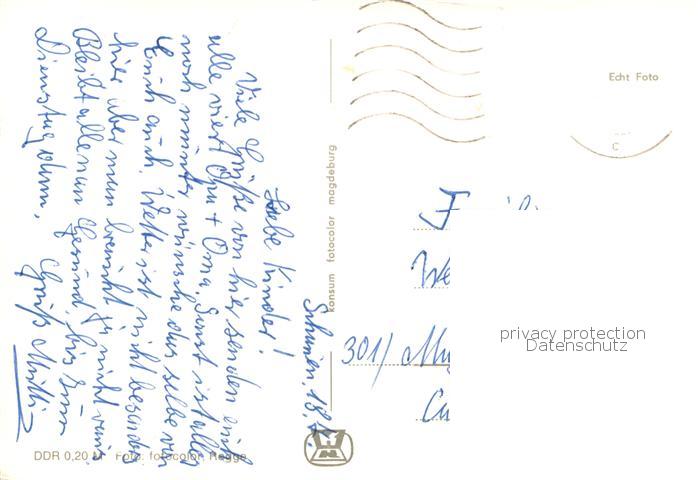 Liebe Kinder!
Viele Grüße von hier senden euch
alle vier Opa + Oma. Sonst ist alles
noch munter wünsche das selbe von
Euch auch. Wetter ist nicht besonders
hier aber man braucht ja nicht
Bleibt alle nun Gesund, bis zum
Dienstag dann, Gruß Mutti
konsum fotocolor magdeburg
DDR 0,20 M Foto: fotocolor, Regge
Echt Foto
301/
privacy protection
Datenschutz